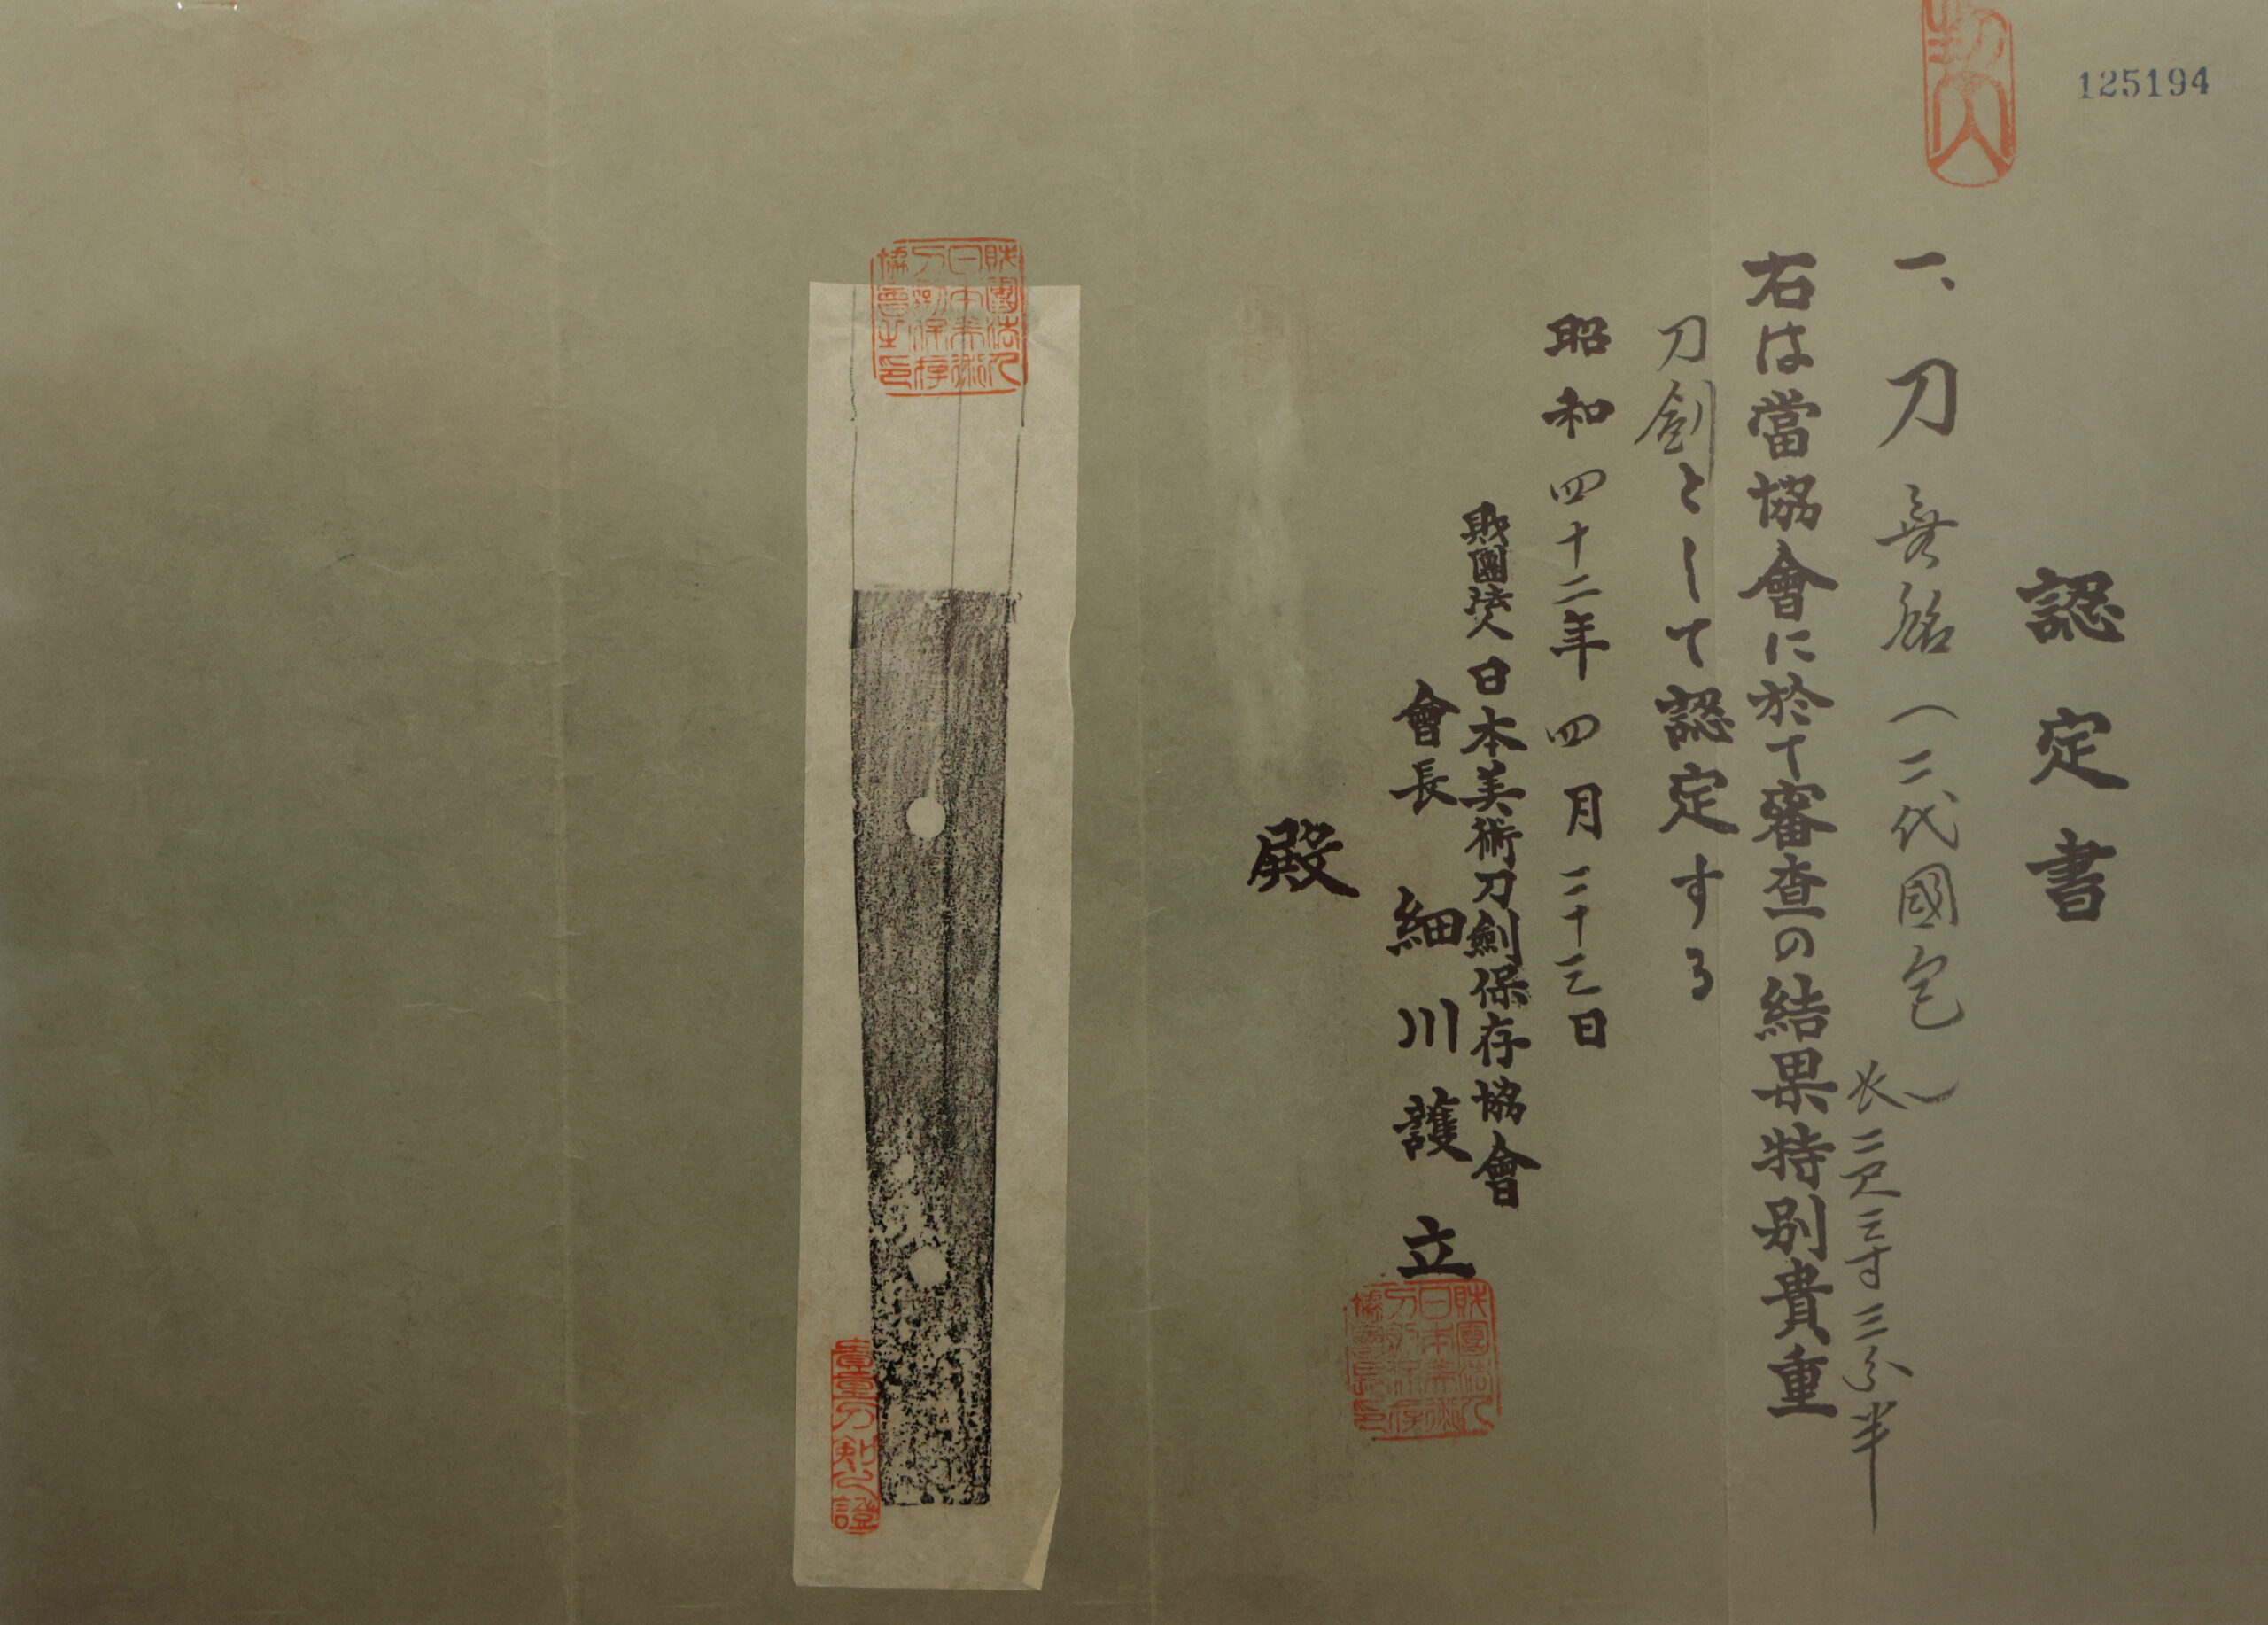 125194
認定書
一、刀 無銘(二代國包)
長二尺三寸三分半
右は當協會に於て審査の結果特別貴重
刀劍として認定する
昭和四十二年四月二十三日
財團法人日本美術刀劍保存協會
會長 細川護立
殿
財團法人日本美術刀劍保存協會長印
財團法人日本美術刀劍保存協會之印
貴重刀剣之證